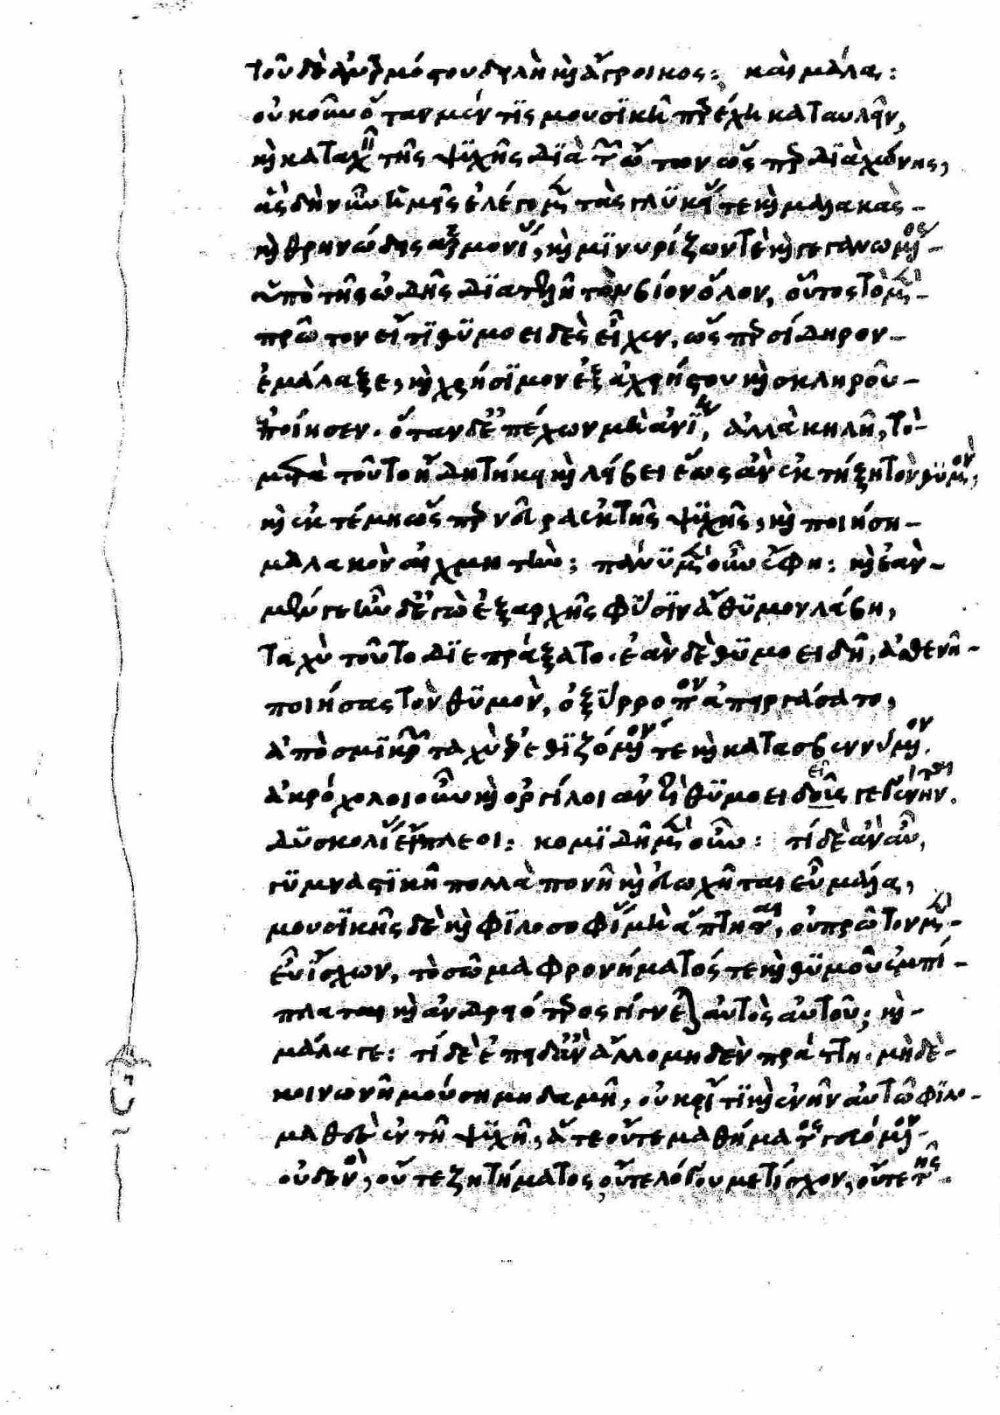 τοῦ δὲ ἀναρμόστου δειλὴ καὶ ἄγροικος: καὶ μάλα:
οὐκοῦν ὅταν μέν τις μουσικῆ παρέχη καταυλεῖν,
καὶ καταχεῖν τῆς ψυχῆς διὰ τῶν ὤτων ὥσπερ διὰ χώνης,
ἃς δὴ νῦν ἡμεῖς ἐλέγομεν τὰς γλυκείας τε καὶ μαλακὰς
καὶ θρηνώδεις ἁρμονίας, καὶ μινυρίζων τὲ καὶ γεγανωμένος
ὑπὸ τῆς ὠδῆς διατελῆ τὸν βίον ὅλον, οὗτος τὸ μὲν
πρῶτον εἴ τι θυμοειδὲς εἶχεν, ὥσπερ σίδηρον
ἐμάλαξε, καὶ χρήσιμον ἐξ ἀχρήστου καὶ σκληροῦ
ἐποίησεν. ὅταν δὲ ἐπέχων μὴ ἀνίη, ἀλλὰ κηλῆ, τὸ
μετὰ τοῦτο ἤδη τήκει καὶ λείβει ἕως ἂν ἐκτήξη τὸν θυμὸν,
καὶ ἐκτέμη ὥσπερ νεῦρα ἐκ τῆς ψυχῆς, καὶ ποιήση
μαλακὸν αἰχμητήν; πάνυ μὲν οὖν ἔφη: καὶ ἐὰν
μέν γε οὖν δὲ τὸ ἐξ ἀρχῆς φύσιν ἄθυμον λάβη,
ταχὺ τοῦτο διεπράξατο. ἐὰν δὲ θυμοειδῆ, ἀσθενῆ
ποιήσας τὸν θυμὸν, ὀξύρροπον ἀπειργάσατο,
ἀπὸ σμικρῶν ταχὺ ἐρεθιζόμενόν τε καὶ κατασβεννύμενον.
ἀκρόχολοι οὖν καὶ ὀργίλοι ἀντὶ θυμοειδοῦς γεγένηνται.
δυσκολίας ἔμπλεοι: κομιδῆ μὲν οὖν: τί δὲ ἂν αὖ,
γυμναστικῆ πολλὰ πονῆ καὶ εὐωχῆται εὖ μάλα,
μουσικῆς δὲ καὶ φιλοσοφίας μὴ ἅπτηται, οὐ πρῶτον μὲν
εὖ ἴσχων, τὸ σῶμα φρονήματός τε καὶ θυμοῦ ἐμπί
πλαται καὶ ἀνδρειότερος γίγνεται αὐτὸς αὑτοῦ; καὶ
μάλα γε: τί δὲ ἐπειδὰν ἄλλο μηδὲν πράττη. μηδὲ
κοινωνῆ μούσης μηδαμῆ, οὐκ εἴ τι καὶ ἐνῆν αὐτῶ φιλο
μαθὲς ἐν τῆ ψυχῆ, ἅτε οὔτε μαθήματος γευόμενον
οὐδενὸς, οὔτε ζητήματος, οὔτε λόγου μετίσχον, οὔτε τῆς